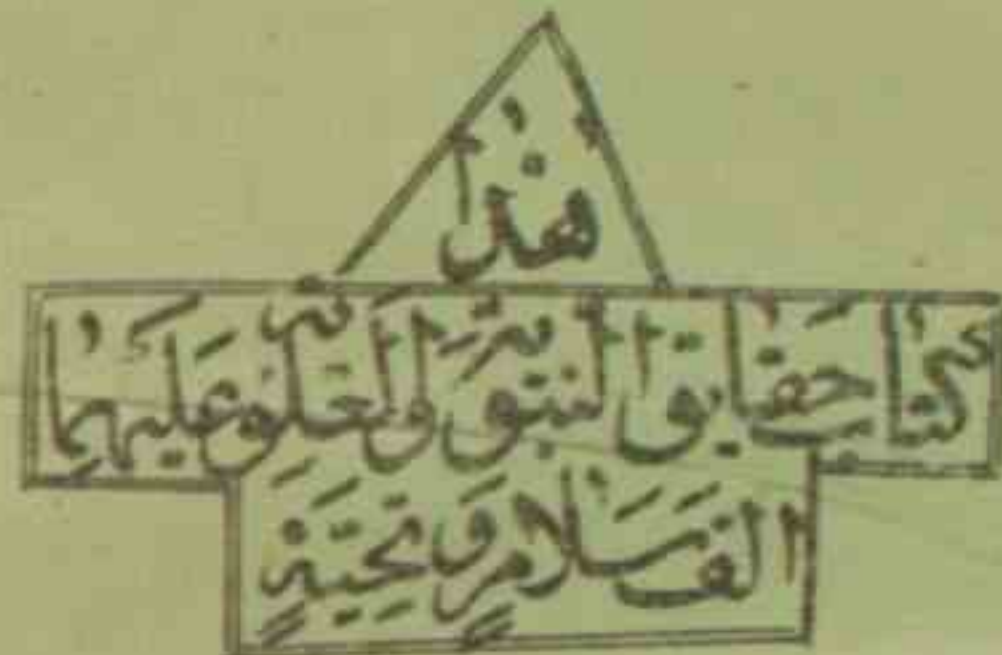 هٰذا
كتاب حقايق النبويّة والعلويّة عليهما
الف سلامٍ وتحيّةٍ